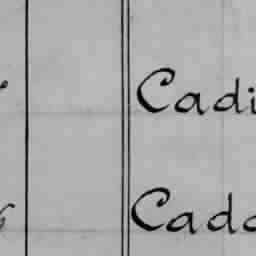 Cadi
Cado